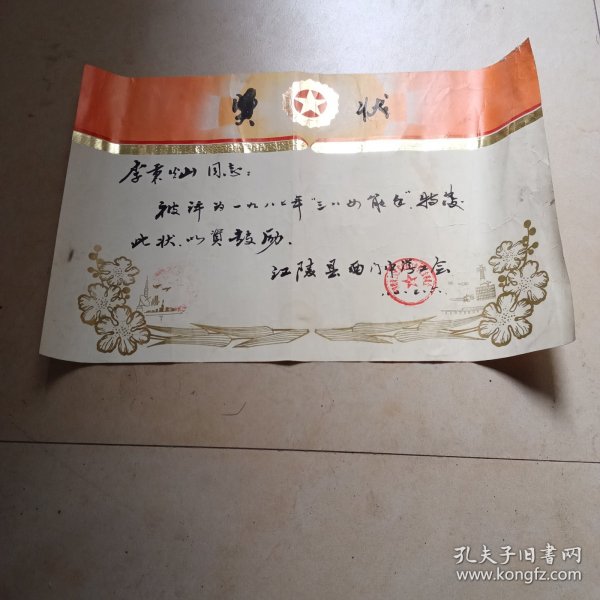 奖 状
李秉灿同志：
被评为一九八七年“三八女能手”特发
此状.以資鼓励.
江陵县西门中学工会
孔夫子旧书网
www.kongfz.com